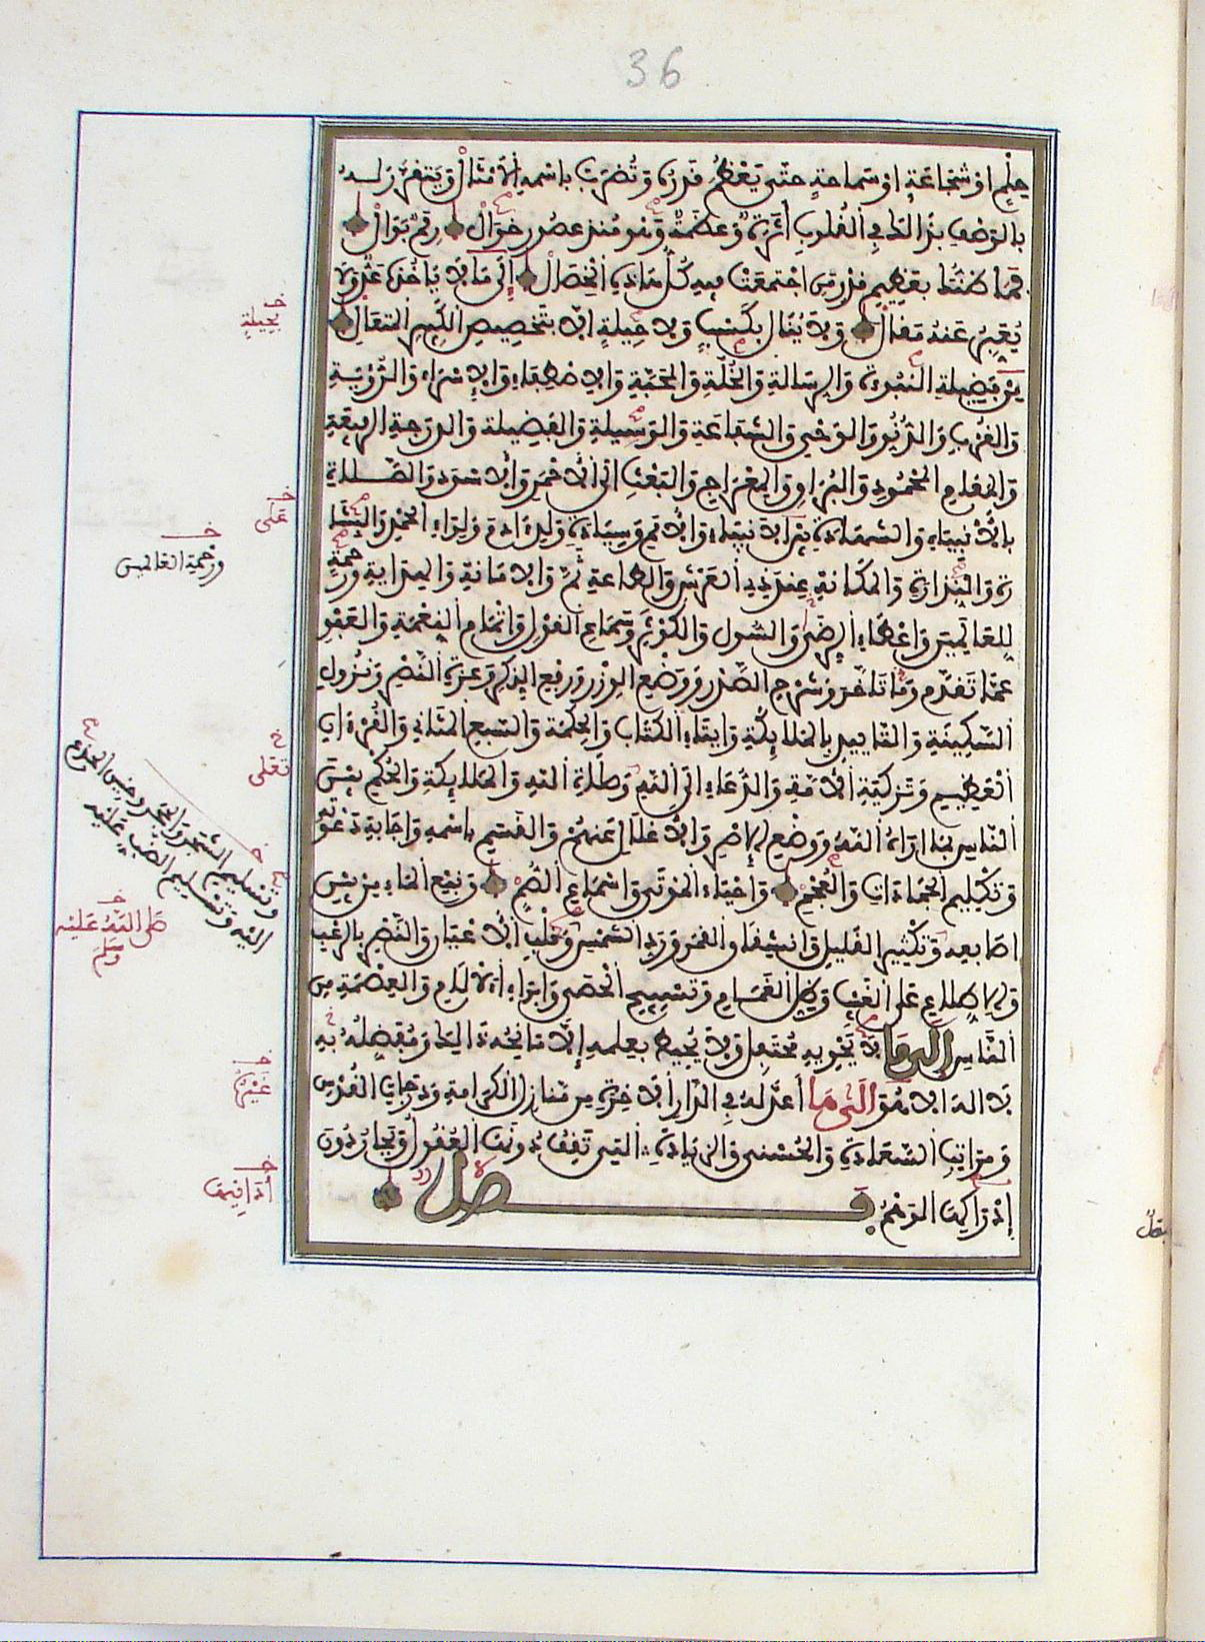 36
حِلْمٍ اوْ شَجَاعَةٍ اوْ سَمَاحَةٍ حتّى يَعْظُمَ قَدْرُهُ وَتُضْرَبَ باسْمِهِ الأَمْثَالُ وَيَتَقَرَّرَ لَهُ
بالوَصْفِ بذَالكَ فِي القُلوبِ أَثَرَةٌ وَعَظَمَةٌ وَهُوَ مُنْذُ عُصُورٍ خَوَالْ رِمَمٌ بَوَالْ
فَمَا ظَنُّكَ بعَظِيمِ قدْرِ مَنِ اجْتَمَعَتْ فِيهِ كُلُّ هَاذِهِ الْخِصَالْ إِلَى مَا لاَ يَاخُذُهُ عَدٌّ وَلاَ
يُعَبِّرُ عَنْهُ مَقَالْ وَلاَ يُنَالُ بكَسْبٍ وَلا حِيلَةٍ الاّ بتَخْصِيصِ الكَبِيرِ المتَعَالِ
مِنْ فَضِيلةِ النّبُوءَةِ وَالرِسَالةِ وَالخُلّةِ وَالمحَبّةِ وَالاِصْطِفَاءِ وَالاِسْرَاءِ وَالرُّؤْيَةِ
وَالقُرْبِ وَالدُّنُوِّ وَالوَحْيِ وَالشّفَاعَةِ وَالوَسِيلةِ وَالفَضِيلةِ وَالدرَجةِ الرفِيعَةِ
وَالمقَامِ المحْمُودِ وَالبُرَاقِ وَالمِعْرَاجِ وَالبَعْثِ الَى الأَحْمَرِ وَالأَسْوَدِ وَالصَّلَاةِ
بالأَنْبِيَاءِ وَالشهَادَةِ بَيْنَ الانبِيَاءِ وَالأُمَمِ وَسِيَادَةِ وَلَدِ ءَادَمَ وَلِوَاءِ الحَمْدِ وَالبِشَا
رَةِ وَالنِّذَارَةِ وَالمكَانَةِ عِنْدَ ذِي العَرْشِ وَالطاعَةِ ثَمَّ وَالامَانَةِ وَالهِدَايةِ وَرَحْمَةٍ
لِلعَالَمِينَ وَإعْطَاءِ الرِضَى وَالسُّولِ وَالكَوْثَرِ وَسَمَاعِ القَوْلِ وَإتْمَامِ النِعْمَةِ وَالعَفْوِ
عَمَّا تَقَدَّمَ وَمَا تَأَخَّرَ وَشَرْحِ الصَّدْرِ وَوَضْعِ الوِزْرِ وَرَفْعِ الذِكْرِ وَعِزَّةِ النَّصْرِ وَنُزُولِ
السَّكِينَةِ وَالتَّأييدِ بِالمَلَائِكَةِ وَإيتَاءِ الكتَابِ وَالحِكْمَةِ وَالسّبعِ المثَانِي وَالقُرْءَانِ
العَظِيمِ وَتَزْكِيَةِ الأُمَّةِ وَالدُّعَاءِ الَى اللهِ وَصَلَاةِ اللهِ وَالمَلَائِكَةِ وَالحُكْمِ بَيْنَ
النَّاسِ بمَا ارَاهُ اللهُ وَوَضْعِ الإصْرِ وَالأَغْلَالِ عَنْهُمْ وَالقَسَمِ باسْمِهِ وَإجَابَةِ دَعْوَتِهِ
وَتَكْلِيمِ الجَمَادَاتِ وَالعُجْمِ وَإحْيَاءِ المَوْتَى وَإسْمَاعِ الصُّمِّ وَنَبْعِ المَاءِ مِنْ بَيْنِ
اصَابِعِهِ وَتَكْثِيرِ القَلِيلِ وَانشِقَاقِ القَمَرِ وَرَدِّ الشمْسِ وَقَلْبِ الأَعْيَانِ وَالنَّصْرِ بالرُّعْبِ
وَالِاطلَاعِ عَلَى الغَيْبِ وَظِلِّ الغَمَامِ وَتَسْبِيحِ الحَصَى وَإبْرَاءِ الآلَامِ وَالعِصْمَةِ مِنَ
النَّاسِ إلَى مَا لَا يَحْوِيهِ مُحْتَفِلٌ وَلَا يُحِيطُ بعِلمِهِ إِلَّا مَانِحُهُ ذَالِكَ وَمُفَضِّلُهُ بهِ
لَا الهَ الا هُوَ الَى مَا أعَدَّ لهُ فِي الدَّارِ الآخِرَةِ مِن مَنَازِلِ الكَرَامةِ وَدَرَجاتِ القُدْسِ
وَمرَاتِبِ السَّعَادَةِ وَالحُسْنَى وَالزيَادَةِ التِي تَقِفُ دُونَهَا العُقُولُ وَيَحَارُ دُونَ
إدْرَاكِهَا الوَهْمُ فصل
بحِيلَةٍ
عَلَى
وَرَحْمَةِ العَالمِينَ
تعَلى
وَتَسليمِ الشجَرِ وَالحجَرِ وحنِينِ الجذعِ
اليْهِ وَتَسْلِيمِ الضب عَلَيْهِ
صَلَى اللهُ عَليْه
وسَلم
غَيْرُهُ
أدَانِيهَا